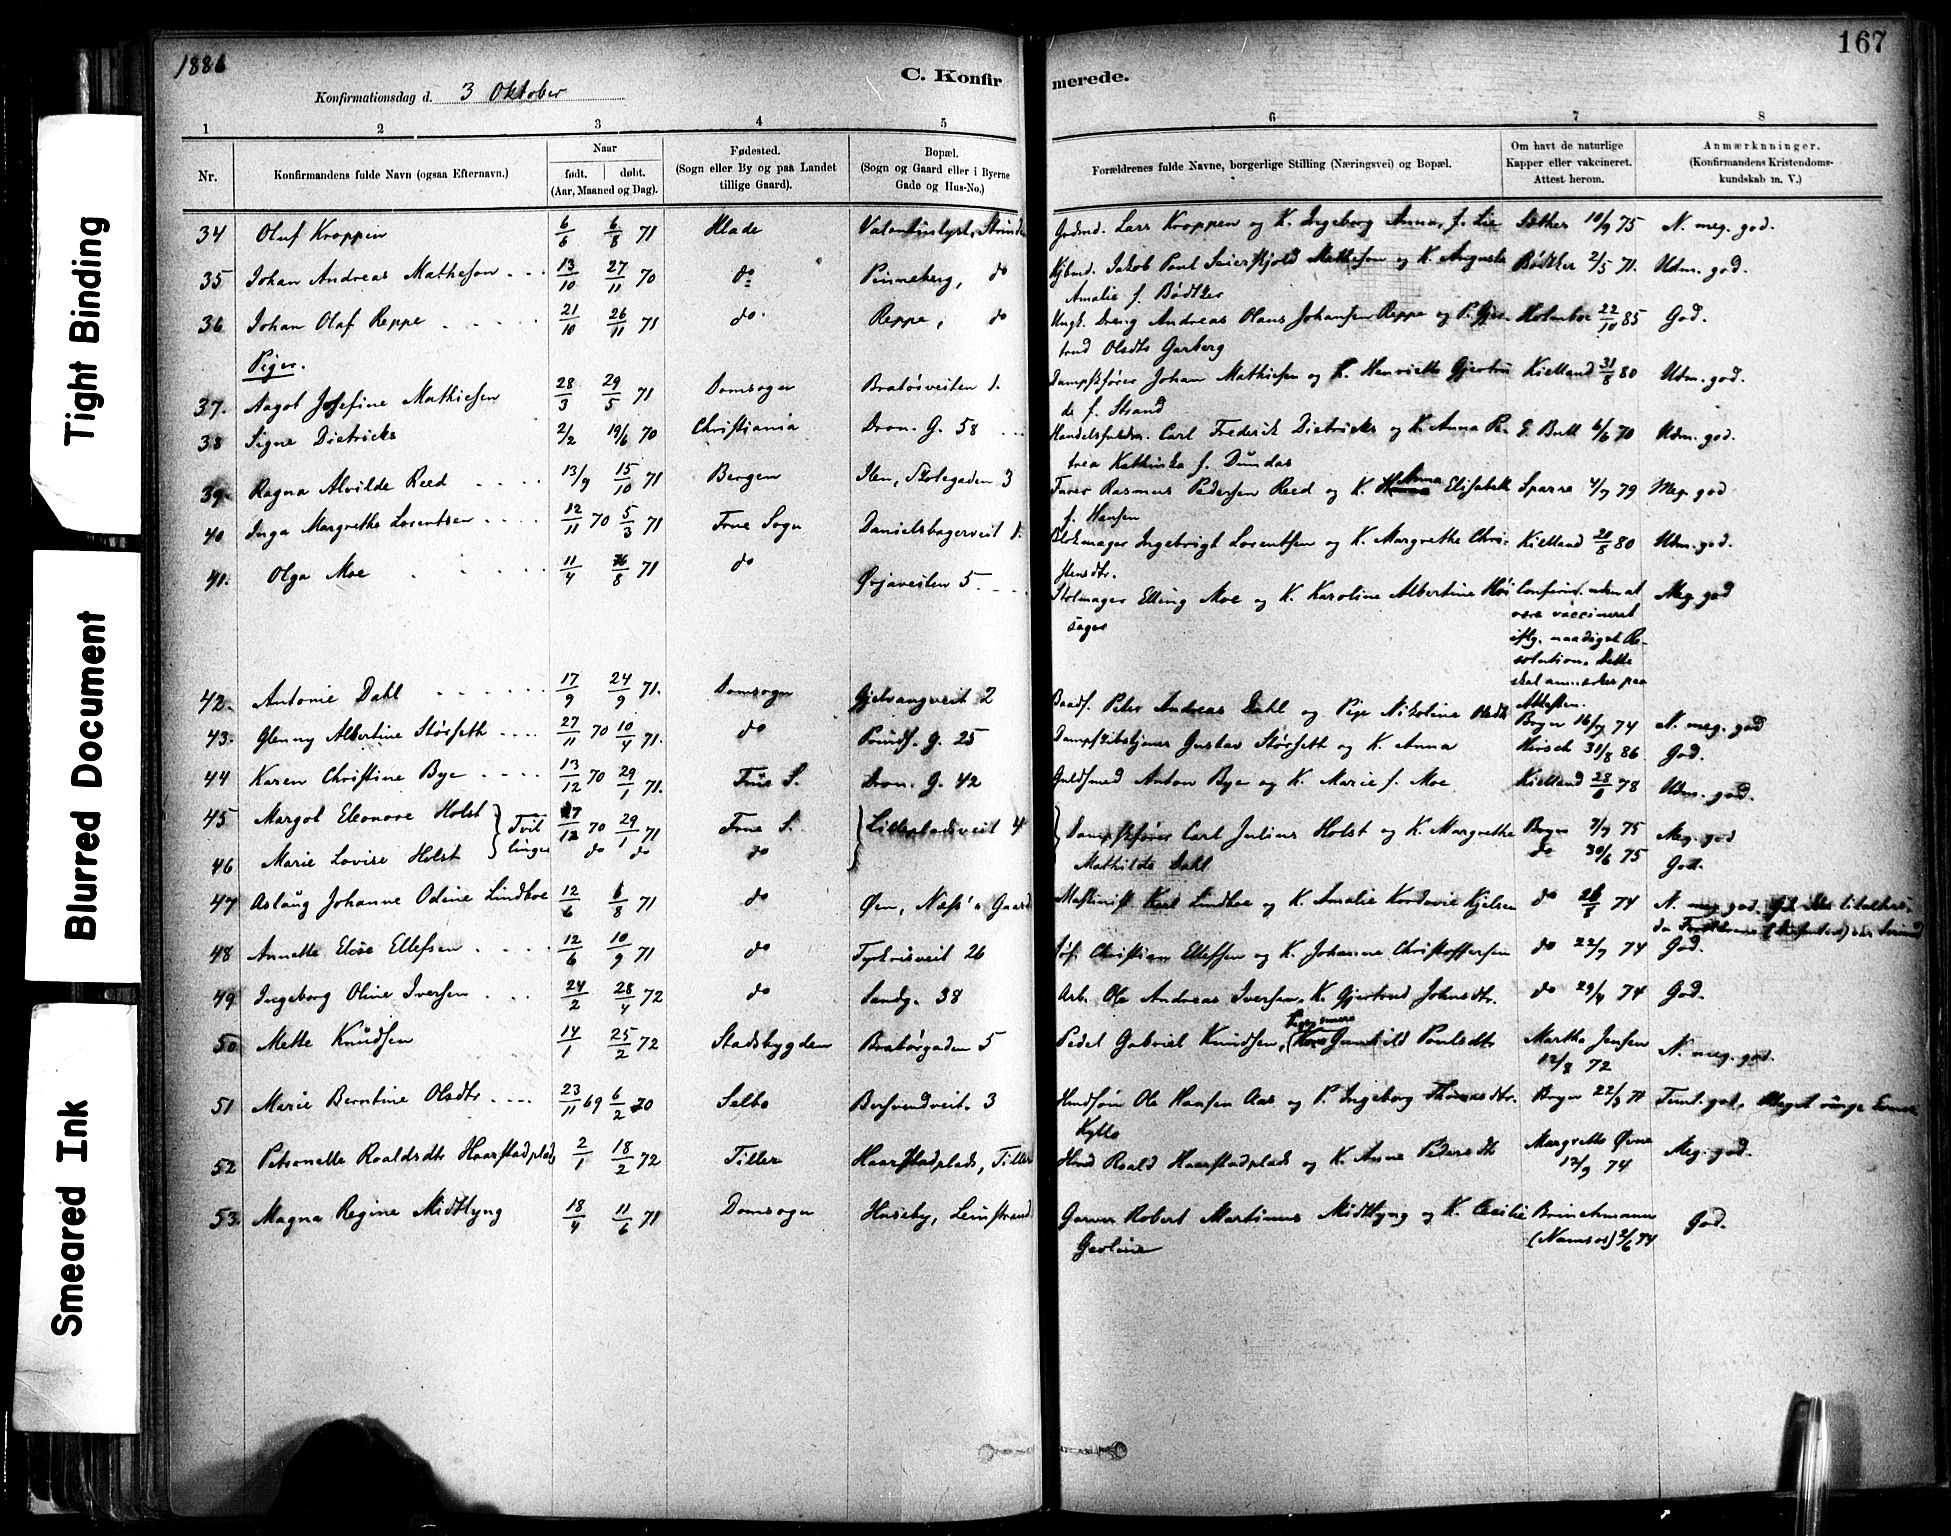 1886
C. Konfirmerede.
167
Konfirmationsdag d. 3 Oktober
1 2 3 4 5 6 7 8
Nr.
Konfirmandens fulde Navn (ogsaa Efternavn.)
Naar
født. døbt.
(Aar, Maaned og Dag).
Fødested.
(Sogn eller By og paa Landet
tillige Gaard).
Bopæl.
(Sogn og Gaard eller i Byerne
Gade og Hus-No.)
Forældrenes fulde Navne, borgerlige Stilling (Næringsvei) og Bopæl.
Om havt de naturlige
Kapper eller vakcineret.
Attest herom.
Anmærknninger.
(Konfirmandens Kristendoms-
kundskab m. V.)
34 Olaf Kroppen 6/6 6/8 71 Hlade Valentinlyst, Strinde Lars Kroppen og K. Ingeborg Anna, f. Lie Sæther 10/9 75 N. meg. god.
35 Johan Andreas Mathesen 13/10 27/11 70 do Pinneberg, do Jakob Paul Seierskjold Mathesen og K. Augusta Bødtker 2/5 71. Udm. god.
Amalie f. Bødtker
36 Johan Olaf Reppe 21/10 26/11 71 do Reppe, do Ungk. Dreng Andreas Olaus Johansen Reppe og P. Gjer- Holmboe 22/10 85 God.
trud Olsdtr Garberg
Piger.
37. Aagot Josefine Mathiesen 28/3 29/5 71 Domsogn Bratørveiten 1. Dampskfører Johan Mathiesen og K. Henriette Gjertru Kielland 31/8 80 Udm. god.
de f. Strand
38 Signe Dietrichs 2/2 19/6 70 Christiania Dron. G. 58 Handelsfuldm. Carl Frederik Dietrichs og K. Anna Pe- G. Bull 6/6 70 Udm. god.
trea Kathinka f. Dundas
39. Ragna Alvilde Reed 13/9 15/10 71 Bergen Ilen, Skolegaden 3 Farver Rasmus Pedersen Reed og K. Anna Elisabeth Sparre 4/7 79 Meg. god
f. Hansen
40 Inga Margrethe Lorentsen 12/11 70 5/3 71 Frue Sogn Danielsbagerveit 1. Blokmager Ingebrigt Lorentsen og K. Margrethe Chri- Kielland 20/8 80 Udm. god.
stensdtr.
41. Olga Moe 11/4 /8 71 do Ørjaveiten 5 Stolmager Elling Moe og K. Karoline Albertine Høi Confirm. uden at Meg. god
sager
være vaccineret
iflg. naadigst Re-
solution. Dette
skal anmerkes paa
Attesten.
42. Antonie Dahl 17/9 24/9 71. Domsogn Gjelvangveit 2 Baadf. Peter Andreas Dahl og Pige Nikoline Olsdtr Boyer 16/7 74 N. meg. god
43. Glenny Albertine Størseth 27/11 70 10/4 71. do Prinds. G. 25 Dampskibstjener Gustav Størseth og K. Anna Hirsch 31/8 86 God.
44 Karen Christine Bye 13/12 70 29/1 71. Frue S. Dron. G. 42 Guldsmed Anton Bye og K. Marie f. Moe Kielland 28/8 78 Udm. god.
45 Margot Eleonore Holst } Tvil 27/12 70 29/1 71 Frue S. } Lillepladsveit 4 } Dampskfører Carl Julius Holst og K. Margrethe Boyer 7/7 75 Meg. god
46 Marie Lovise Holst } linger do do do Mathilde Dahl do 30/6 75 God.
47 Aslaug Johanne Odine Lindboe 12/6 6/8 71 do Øen, Næss's Gaard Maskinist Karl Lindboe og K. Amalie Kordovie Kjelsen do 26/8 74 N. meg. god.
48 Annette Elise Ellefsen 12/6 10/9 71 do Tyskrisveit 26 Christian Ellefsen og K. Johanne Christoffersen do 22/7 74 God.
49 Ingeborg Oline Iversen 24/2 28/4 72 do Sandg. 38 Arb. Ole Andreas Iversen, K. Gjertrud Johnsdtr. do 29/4 74 God.
50 Mette Knudsen 14/1 25/2 72 Stadsbygden Bratørgaden 5 Pedel Gabriel Knudsen, Gunhild Paulsdtr Martha Jensen N. meg. god.
12/8 72
51 Marie Berntine Olsdtr 23/11 69 6/2 70 Selbo Bersvendveit. 3 Husmsøn Ole Hansen Aas og P. Ingeborg Thomasdtr. Boyer 22/3 71 Teml. god.
Kyllo
52 Petronelle Roaldsdtr Haarstadplads 2/1 18/2 72 Tiller Haarstadplads, Tiller Husmd Roald Haarstadplads og K. Anne Pedersdtr Margrethe Øvne Meg. god.
12/9 74
53. Magna Regine Midtlyng 18/4 11/6 71 Domsogn Huseby, Leinstrand Garver Robert Martinus Midtlyng og K. Cecilie Brinchmann God.
Gesline
(Namsos) 2/6 74
Tight Binding
Blurred Document
Smeared Ink